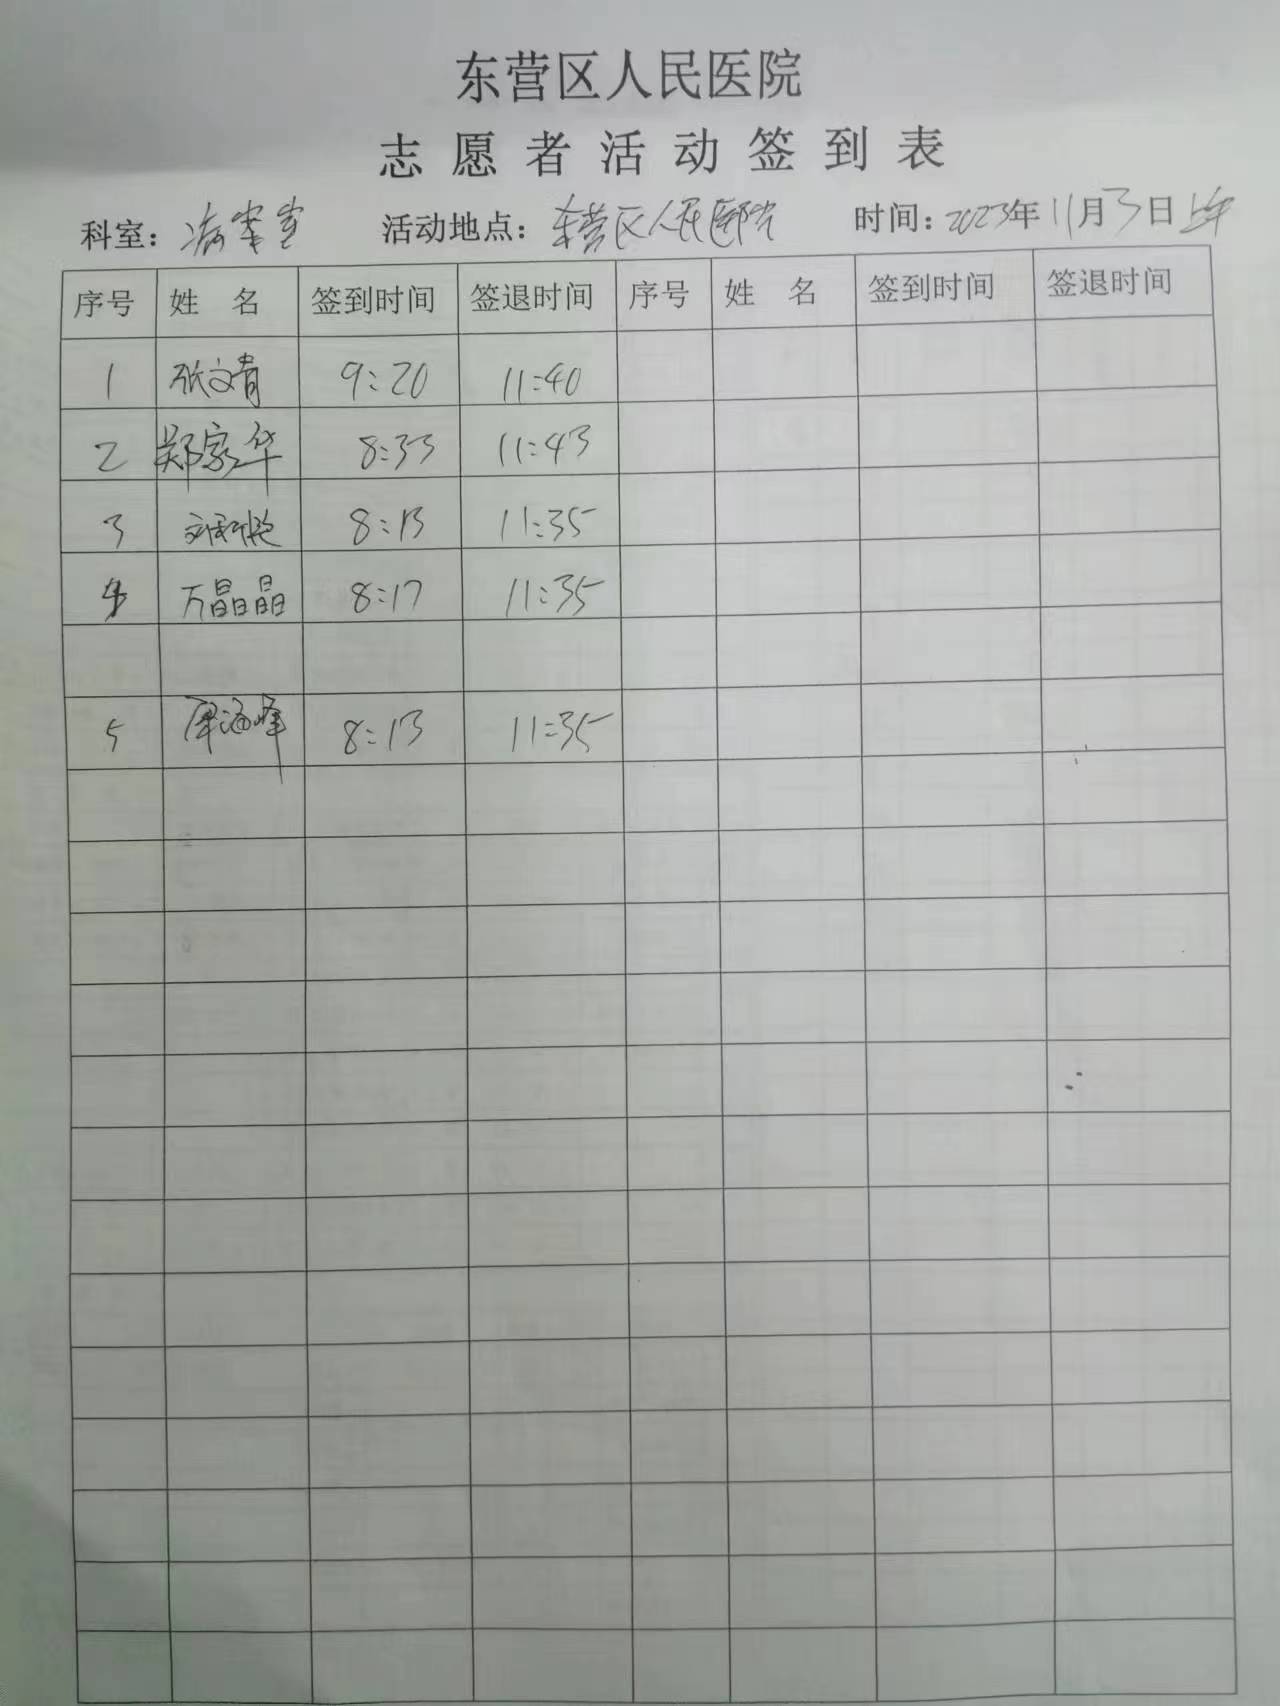 东营区人民医院
志愿者活动签到表
科室： 活动地点：东营区人民医院 时间：2023年11月3日上午
序号 姓名 签到时间 签退时间 序号 姓名 签到时间 签退时间
1 张文青 9:20 11:40
2 郑家华 8:33 11:43
3 8:13 11:35
4 万晶晶 8:17 11:35
5 海峰 8:13 11:35